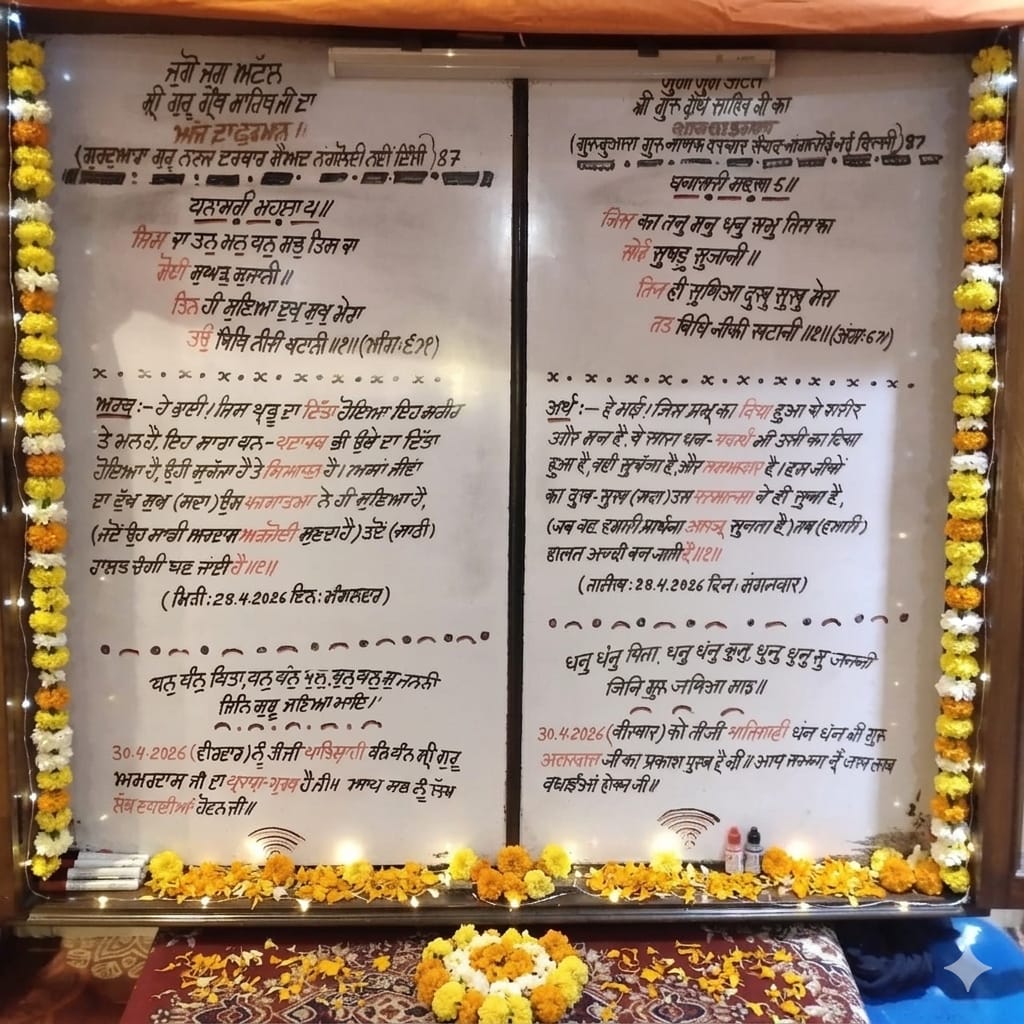 ਜੁਗੋ ਜੁਗ ਅਟੱਲ
ਸ਼੍ਰੀ ਗੁਰੂ ਗ੍ਰੰਥ ਸਾਹਿਬ ਜੀ ਦਾ
ਅੱਜ ਦਾ ਫੁਰਮਾਨ॥
(ਗੁਰਦੁਆਰਾ ਗੁਰੂ ਨਾਨਕ ਦਰਬਾਰ ਸੈਅਦ ਨੰਗਲੋਈ ਨਈਂ ਦਿੱਲੀ) 87
ਧਨਾਸਰੀ ਮਹਲਾ ੫॥
ਜਿਸ ਕਾ ਤਨੁ ਮਨੁ ਧਨੁ ਸਭੁ ਤਿਸ ਕਾ
ਸੋਈ ਸੁਘੜੁ ਸੁਜਾਨੀ॥
ਤਿਨ ਹੀ ਸੁਣਿਆ ਦੁਖੁ ਸੁਖੁ ਮੇਰਾ
ਤਉ ਬਿਧਿ ਨੀਕੀ ਖਟਾਨੀ॥੧॥(ਅੰਗ:੬੭੧)
x · x · x · x · x · x · x · x · x · x ·
ਅਰਥ:– ਹੇ ਭਾਈ! ਜਿਸ ਪ੍ਰਭੂ ਦਾ ਦਿੱਤਾ ਹੋਇਆ ਇਹ ਸਰੀਰ
ਤੇ ਮਨ ਹੈ, ਇਹ ਸਾਰਾ ਧਨ-ਪਦਾਰਥ ਭੀ ਉਸੇ ਦਾ ਦਿੱਤਾ
ਹੋਇਆ ਹੈ, ਉਹੀ ਸੁਚੱਜਾ ਹੈ ਤੇ ਸਿਆਣਾ ਹੈ। ਅਸਾਂ ਜੀਵਾਂ
ਦਾ ਦੁੱਖ ਸੁਖ (ਸਦਾ) ਉਸ ਪਰਮਾਤਮਾ ਨੇ ਹੀ ਸੁਣਿਆ ਹੈ,
(ਜਦੋਂ ਉਹ ਸਾਡੀ ਅਰਦਾਸ ਅਰਜੋਈ ਸੁਣਦਾ ਹੈ) ਤਦੋਂ (ਸਾਡੀ)
ਹਾਲਤ ਚੰਗੀ ਬਣ ਜਾਂਦੀ ਹੈ॥੧॥
(ਮਿਤੀ: 28.4.2026 ਦਿਨ: ਮੰਗਲਵਾਰ)
ਧਨੁ ਧੰਨੁ ਪਿਤਾ, ਧਨੁ ਧੰਨੁ ਕੁਲੁ, ਧਨੁ ਧਨੁ ਸੁ ਜਨਨੀ
ਜਿਨਿ ਗੁਰੂ ਜਣਿਆ ਮਾਇ।
30.4.2026 (ਵੀਰਵਾਰ) ਨੂੰ ਤੀਜੀ ਪਾਤਿਸ਼ਾਹੀ ਧੰਨ ਧੰਨ ਸ਼੍ਰੀ ਗੁਰੂ
ਅਮਰਦਾਸ ਜੀ ਦਾ ਪ੍ਰਕਾਸ਼-ਪੁਰਬ ਹੈ ਜੀ॥ ਆਪ ਸਭ ਨੂੰ ਲੱਖ
ਲੱਖ ਵਧਾਈਆਂ ਹੋਵਨ ਜੀ॥
जुगो जुग अटल
श्री गुरु ग्रंथ साहिब जी का
(गुरुद्वारा गुरु नानक दरबार सैयद नांगलोई नई दिल्ली) 87
धनासरी महला 5॥
जिस का तनु मनु धनु सभु तिस का
सोई सुघड़ु सुजानी॥
तिन ही सुणिआ दुखु सुखु मेरा
तउ बिधि नीकी खटानी॥१॥(अंग:६७१)
x · x · x · x · x · x · x · x · x · x ·
अर्थ:– हे भाई! जिस प्रभू का दिया हुआ ये शरीर
और मन है, ये सारा धन-पदार्थ भी उसी का दिया
हुआ है, वही सुचॅजा है, और समझदार है। हम जीवों
का दुख-सुख (सदा) उस परमात्मा ने ही सुना है,
(जब वह हमारी प्रार्थना आरजू सुनता है) तब (हमारी)
हालत अच्छी बन जाती है॥१॥
(तारीख: 28.4.2026 दिन: मंगलवार)
धनु धंनु पिता, धनु धंनु कुलु, धनु धनु सु जननी
जिनि गुरु जणिआ माइ॥
30.4.2026 (वीरवार) को तीजी पातिशाही धंन धंन श्री गुरु
अमरदास जी का प्रकाश पुरब है जी॥ आप सभना नूँ लख लख
वधाईआं होवन जी॥